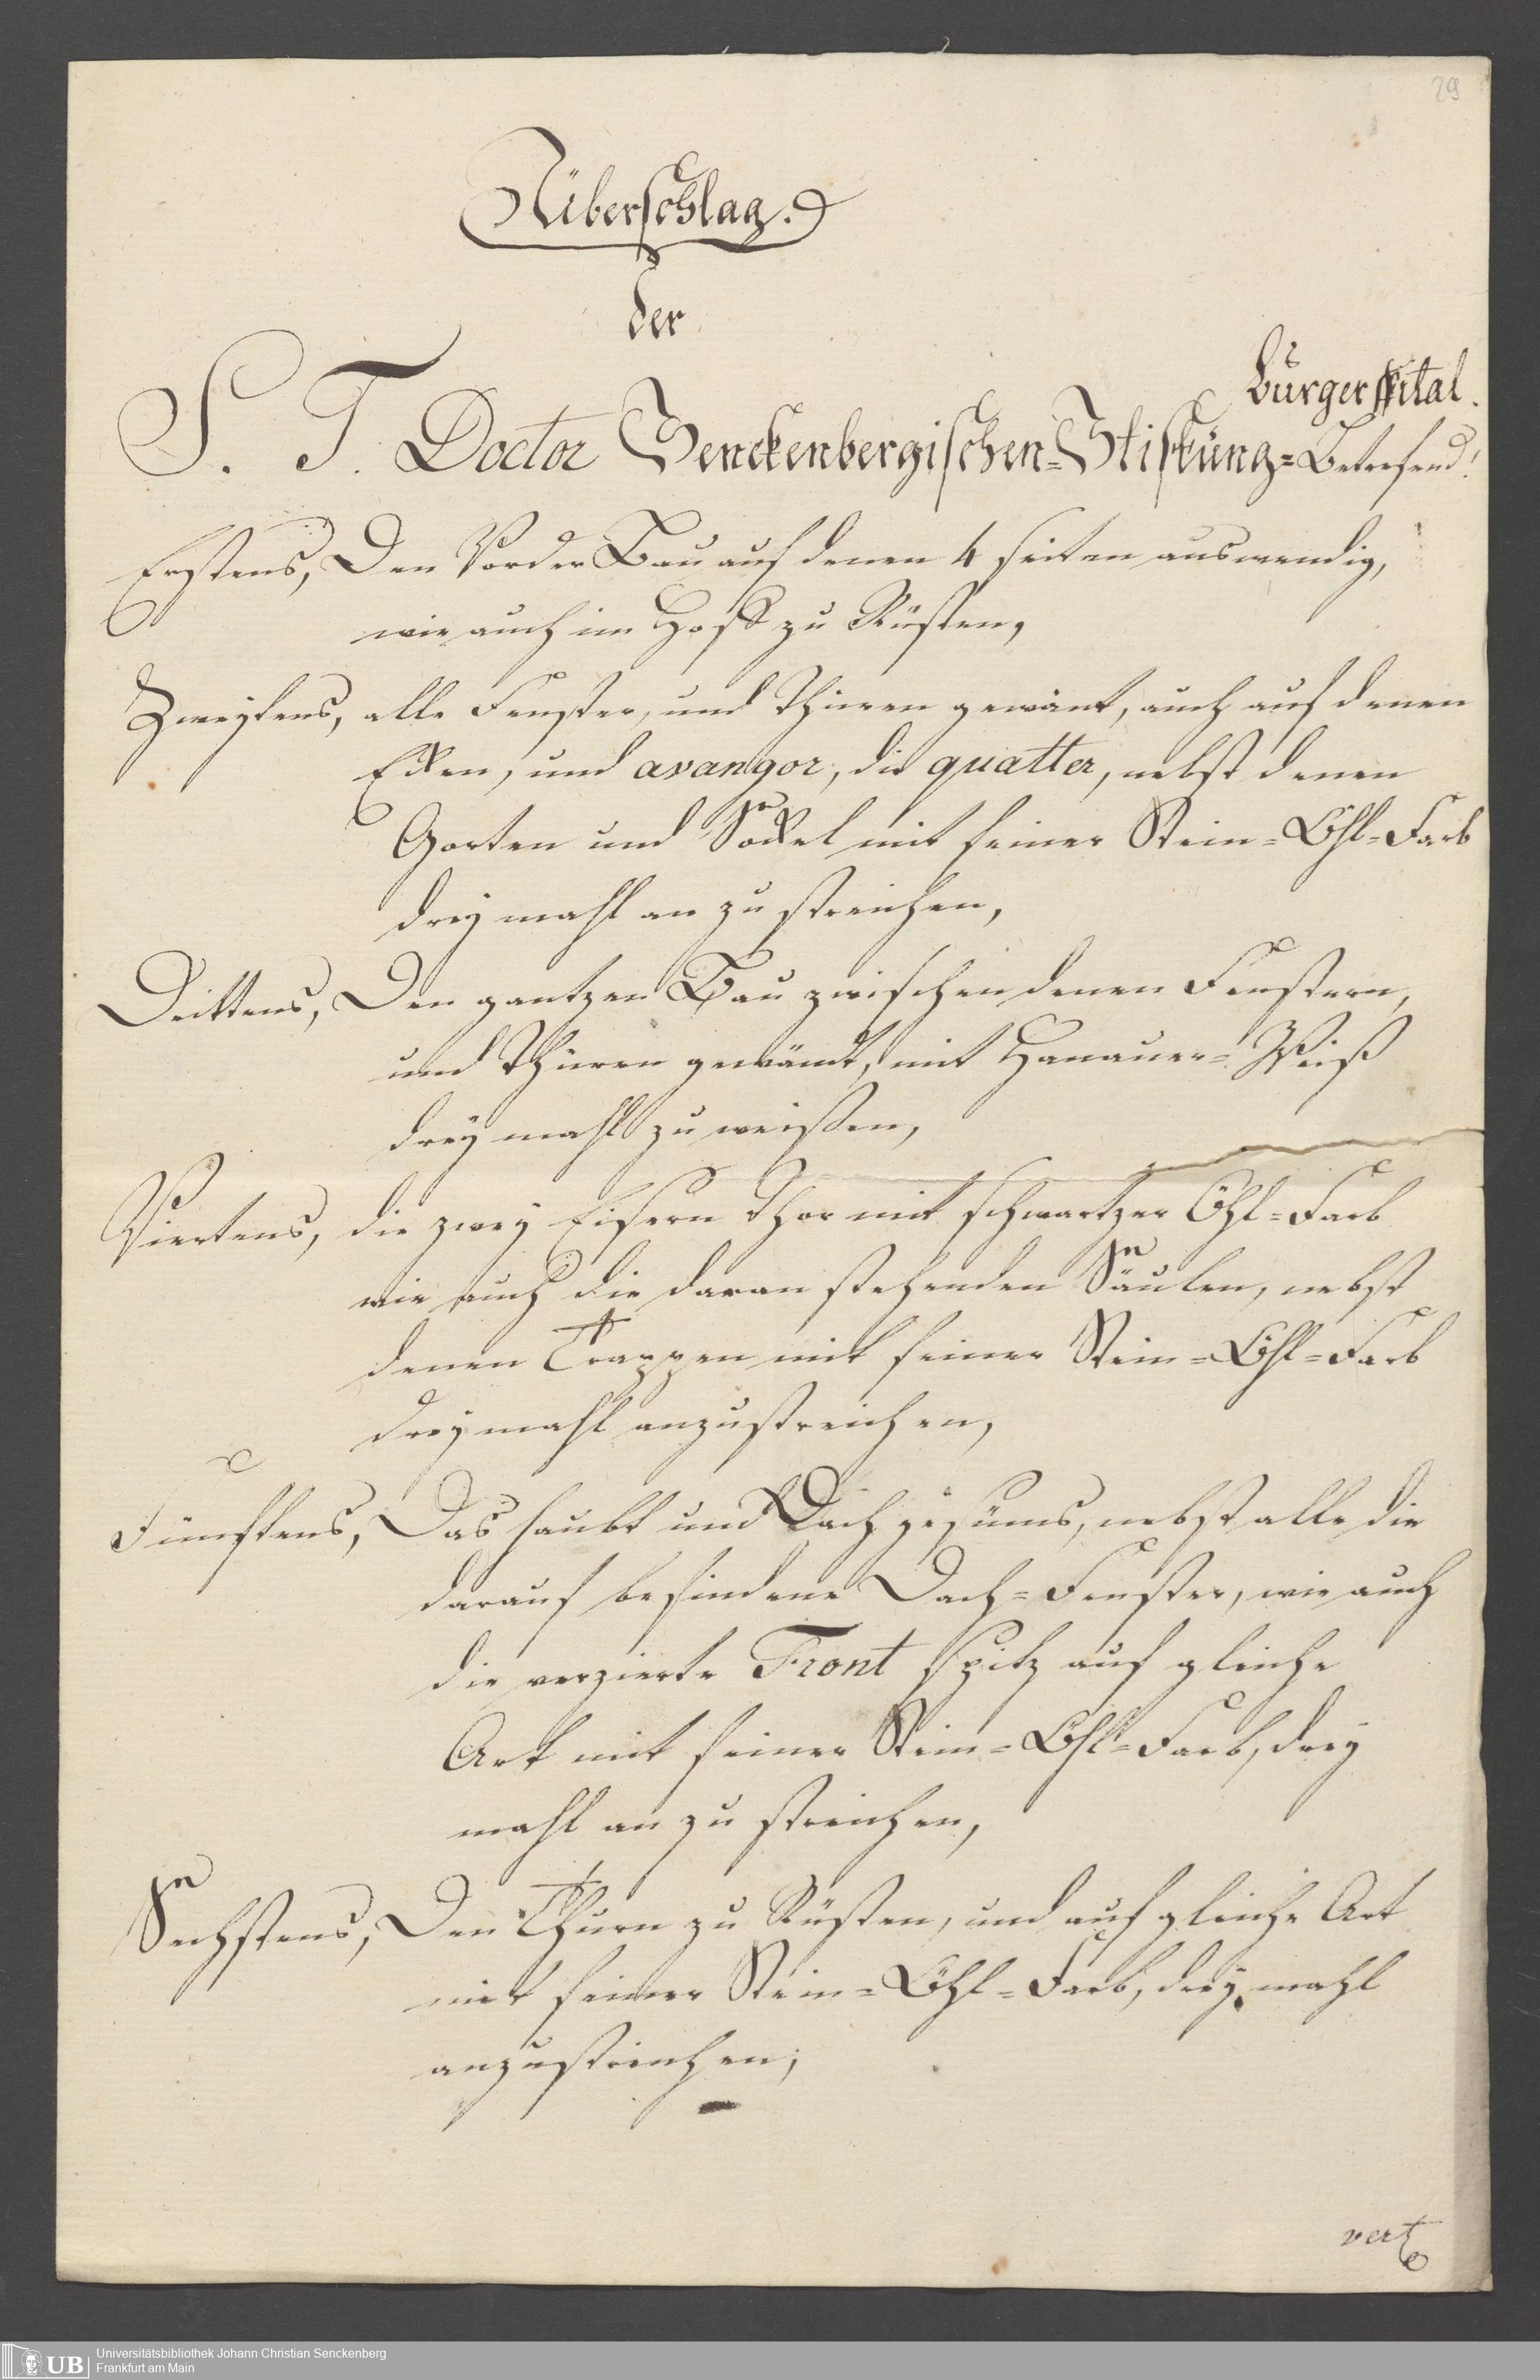 29
Überschlag.
der
Bürgerspital.
S. T. Doctor Senckenbergischen=Stiftung=Betrefend!
Erstens, Den Vorder Bau auf denen 4 seiten auswendig,
wie auch im Hoff zu Rüsten,
Zweytens, alle Fenster, und Thüren gewänt, auch auf denen
Ecken, und avangor, die quatter, nebst denen
Gorten und Sockel mit feiner Stein=Öhl=Farb
drey mahl an zu streichen,
Drittens, Den gantzen Bau zwischen denen Fenstern,
und Thüren gewändt, mit Hanauer=Weiß
drey mahl zu weissen,
Viertens, die zwey Eisern Thor mit schwartzer Öhl=Farb
wie auch die daran stehenden Säulen, nebst
denen Trappen mit feiner Stein=Öhl=Farb
drey mahl anzustreichen,
Fünftens, Das haubt und Dach gesims, nebst alle die
darauf befindene Dach=Fenster, wie auch
die verzierte Front spitz auf gleiche
Art mit feiner Stein=Öhl=Farb, drey
mahl an zu streichen,
Sechstens, Den Thurn zu Rüsten, und auf gleiche Art
mit feiner Stein=Öhl=Farb, drey mahl
anzustreichen;
vert
UB
Universitätsbibliothek Johann Christian Senckenberg
Frankfurt am Main